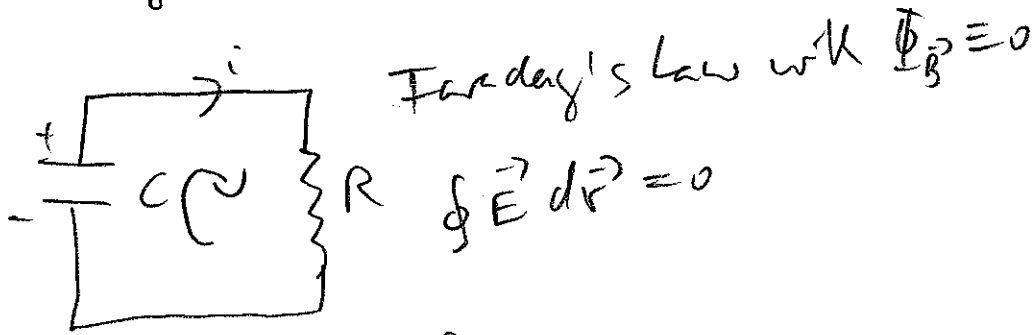 i
Faraday's Law with Φ_B⃗ ≡ 0
+
- C R ∮ E⃗ dr⃗ = 0